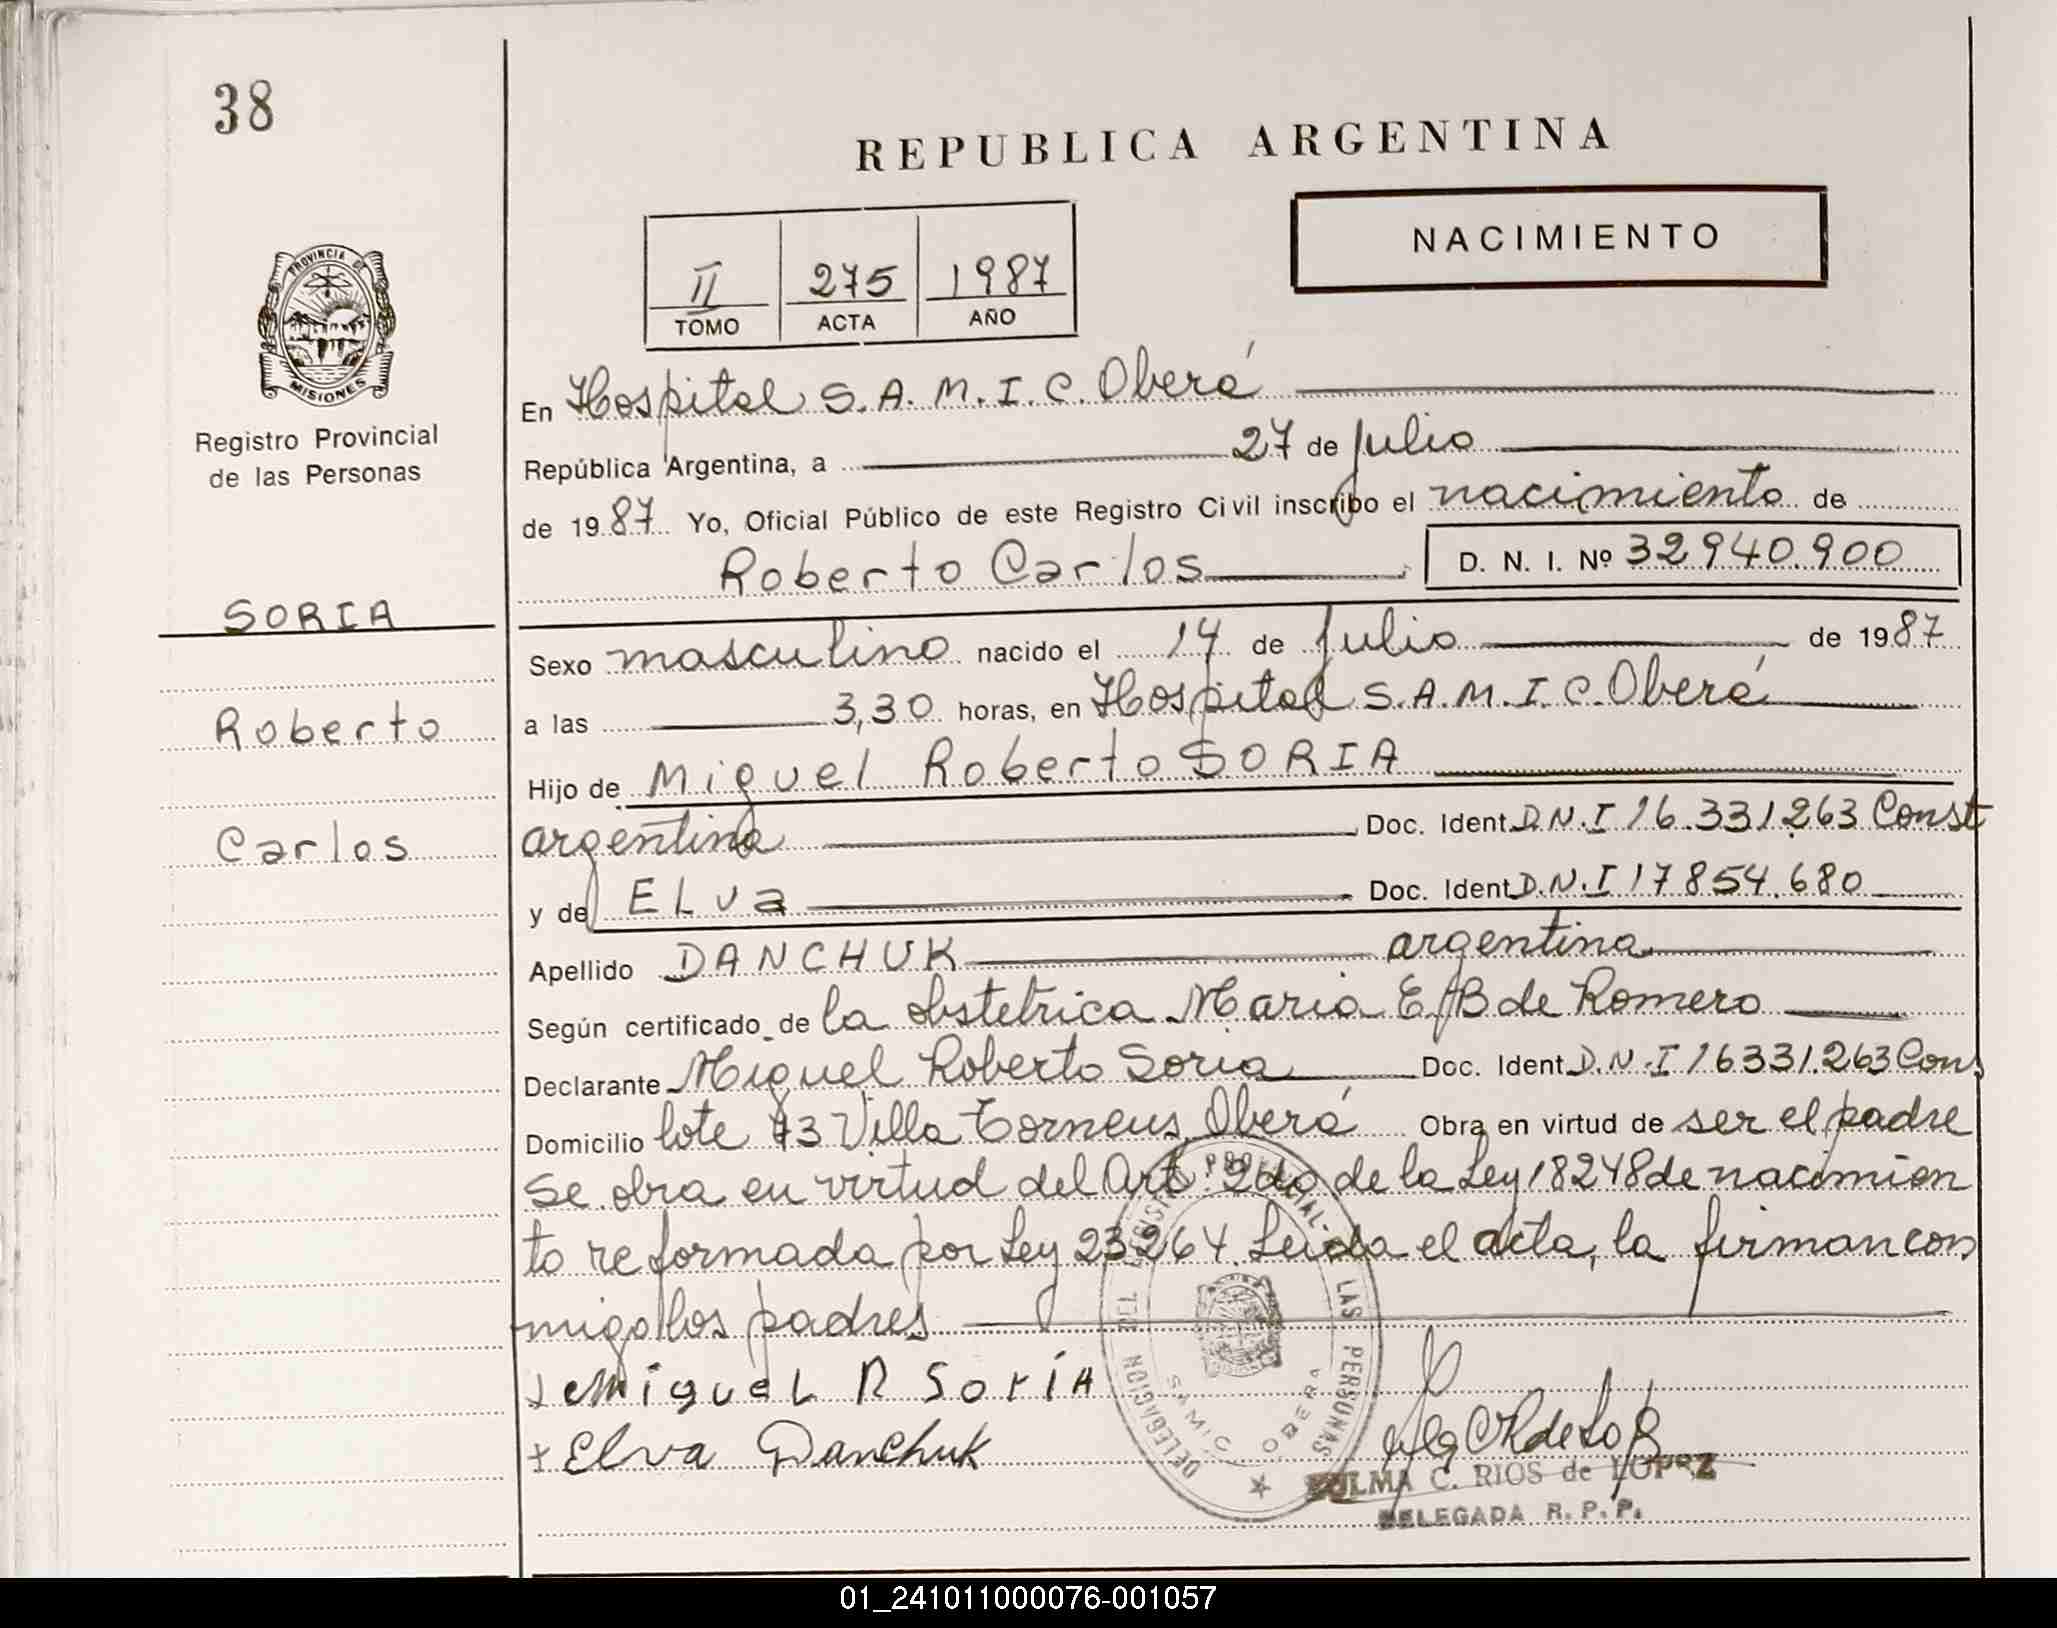 38
REPUBLICA ARGENTINA
NACIMIENTO
II 275 1987
TOMO ACTA AÑO
PROVINCIA DE
MISIONES
Registro Provincial
de las Personas
SORIA
Roberto
Carlos
En Hospital S.A.M.I.C. Oberá
República Argentina, a 27 de Julio
de 1987 Yo, Oficial Público de este Registro Civil inscribo el nacimiento de
Roberto Carlos D. N. I. Nº 32940.900
Sexo masculino nacido el 14 de Julio de 1987
a las 3,30 horas, en Hospital S.A.M.I.C. Oberá
Hijo de Miguel Roberto SORIA
argentina Doc. Ident. D.N.I 16.331.263 Const
y de ELva Doc. Ident. D.N.I 17854.680
Apellido DANCHUK argentina
Según certificado de la obstetrica Maria E B de Romero
Declarante Miguel Roberto Soria Doc. Ident. D.N.I 16331.263 Cons
Domicilio lote 73 Villa Torneus Oberá Obra en virtud de ser el padre
Se obra en virtud del Art. 2do de la Ley 18248 de nacimien
to reformada por Ley 23264. Leida el acta, la firman con
migo los padres
Miguel R Soria
+ Elva Danchuk
DELEGACION DEL REGISTRO PROVINCIAL DE LAS PERSONAS
SAMIC OBERA
ZULMA C. RIOS de LOPEZ
DELEGADA R. P. P.
01_241011000076-001057